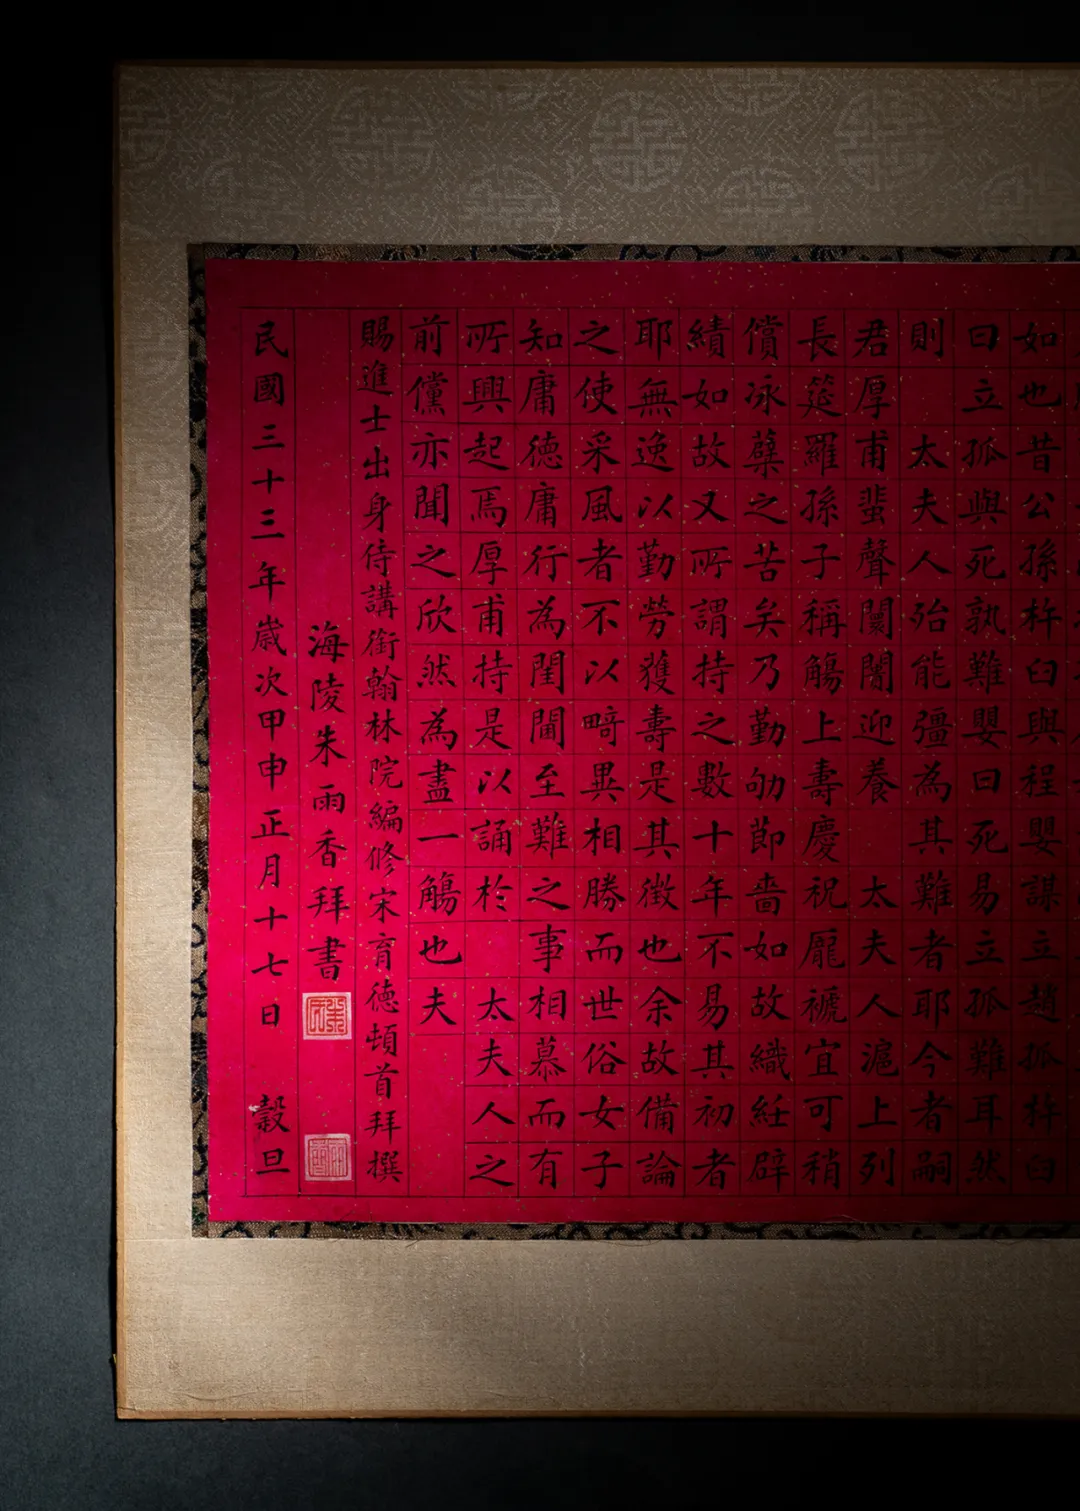 如也昔公孫杵臼與程嬰謀立趙孤杵臼
曰立孤與死孰難嬰曰死易立孤難耳然
則 太夫人殆能彊為其難者耶今者嗣
君厚甫蜚聲闤闠迎養 太夫人滬上列
長筵羅孫子稱觴上壽慶祝龎褫宜可稍
償冰蘗之苦矣乃勤劬節嗇如故織紝辟
績如故又所謂持之數十年不易其初者
耶無逸以勤勞獲壽是其徵也余故備論
之使采風者不以畸異相勝而世俗女子
知庸德庸行為閨閫至難之事相慕而有
所興起焉厚甫持是以誦於 太夫人之
前儻亦聞之欣然為盡一觴也夫
賜進士出身侍講銜翰林院編修宋育德頓首拜撰
海陵朱雨香拜書
民國三十三年歲次甲申正月十七日 穀旦